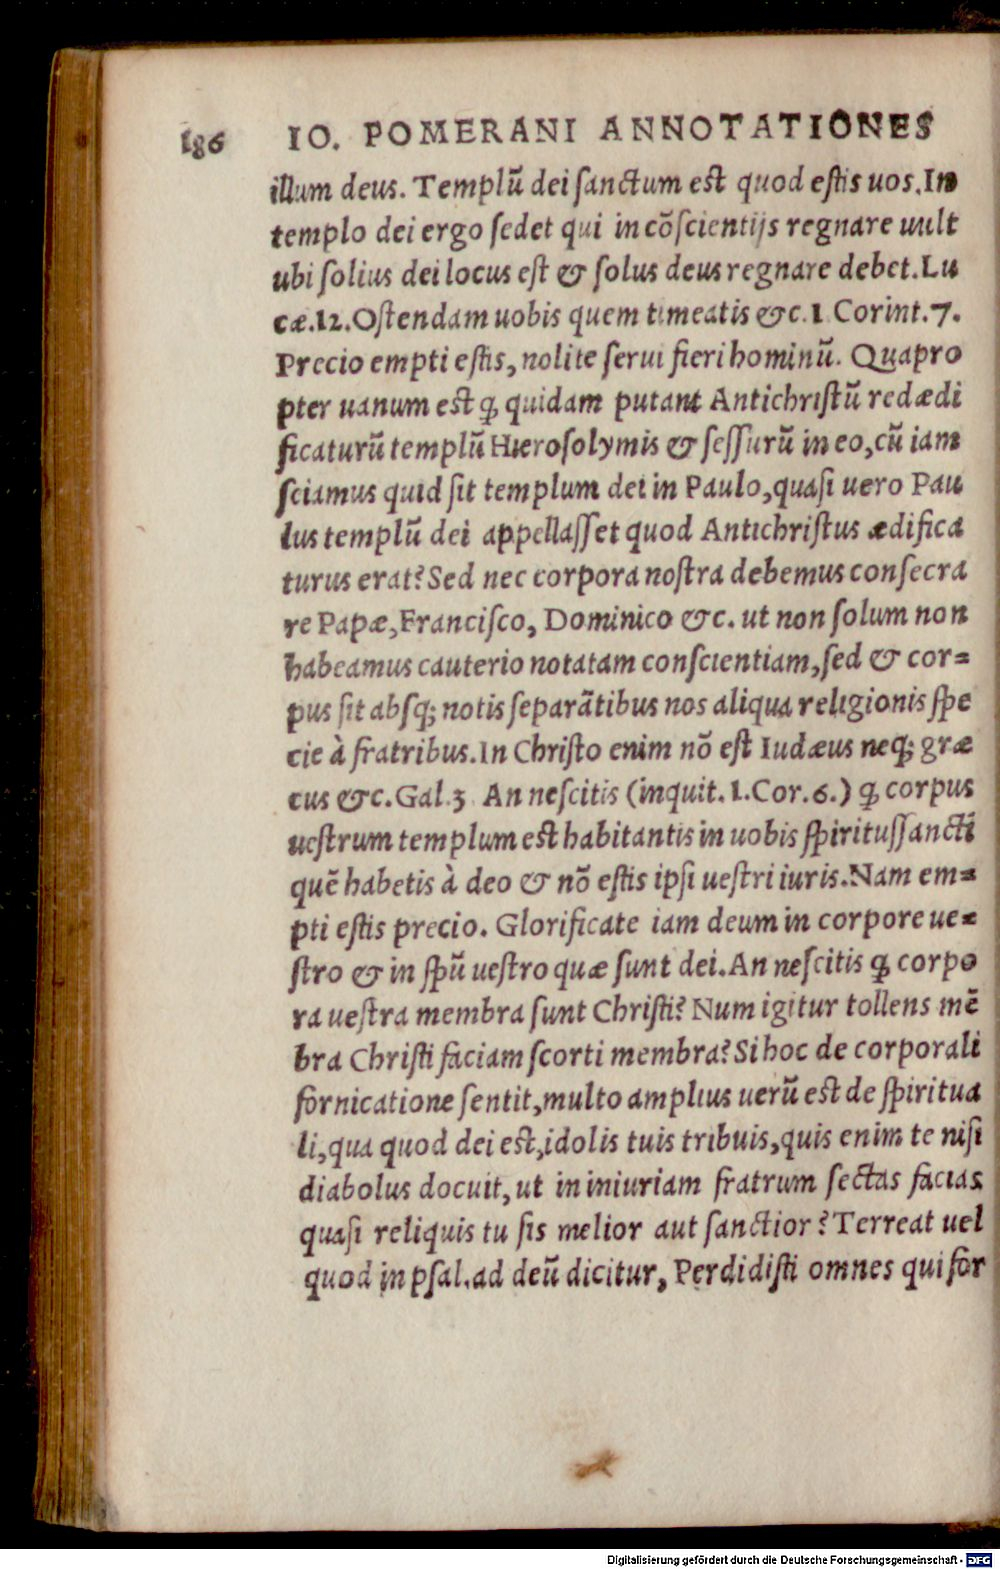 186 IO. POMERANI ANNOTATIONES
illum deus. Templũ dei sanctum est quod estis uos. In
templo dei ergo sedet qui in cõscientijs regnare uult
ubi solius dei locus est & solus deus regnare debet. Lu
cæ.12. Ostendam uobis quem timeatis &c. 1 Corint.7.
Precio empti estis, nolite serui fieri hominũ. Quapro
pter uanum est ꝙ quidam putant Antichristũ redædi
ficaturũ templũ Hierosolymis & sessurũ in eo, cũ iam
sciamus quid sit templum dei in Paulo, quasi uero Pau
lus templũ dei appellasset quod Antichristus ædifica
turus erat? Sed nec corpora nostra debemus consecra
re Papæ, Francisco, Dominico &c. ut non solum non
habeamus cauterio notatam conscientiam, sed & cor=
pus sit absq; notis separãtibus nos aliqua religionis spe
cie à fratribus. In Christo enim nõ est Iudæus neq; græ
cus &c. Gal.3 An nescitis (inquit. 1. Cor. 6.) ꝙ corpus
uestrum templum est habitantis in uobis spiritussancti
quẽ habetis à deo & nõ estis ipsi uestri iuris. Nam em=
pti estis precio. Glorificate iam deum in corpore ue=
stro & in spũ uestro quæ sunt dei. An nescitis ꝙ corpo
ra uestra membra sunt Christi? Num igitur tollens mẽ
bra Christi faciam scorti membra? Si hoc de corporali
fornicatione sentit, multo amplius uerũ est de spiritua
li, qua quod dei est, idolis tuis tribuis, quis enim te nisi
diabolus docuit, ut in iniuriam fratrum sectas facias
quasi reliquis tu sis melior aut sanctior? Terreat uel
quod in psal. ad deũ dicitur, Perdidisti omnes qui for
Digitalisierung gefördert durch die Deutsche Forschungsgemeinschaft - DFG